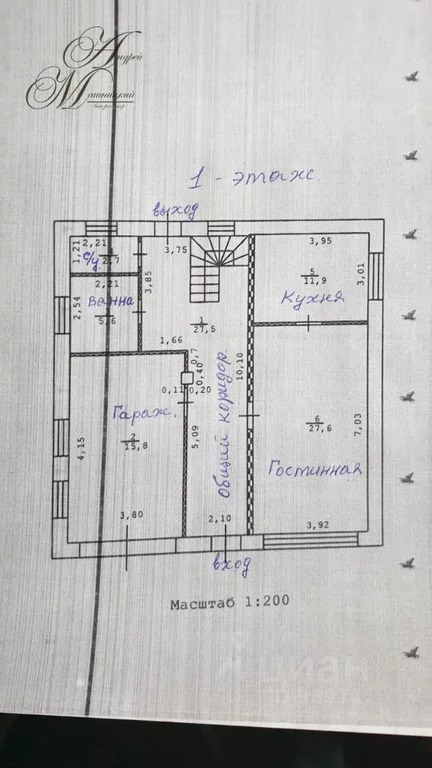 Андрей
Машницкий
1 - этаж.
выход
2,21
1,21
с/у.
2,7
3,75
3,95
2,21
Ванна
2,54
5,6
3,85
5
11,9
3,01
Кухня
1
27,5
1,66
0,7
0,40
10,10
0,11
0,20
Гараж.
2
15,8
4,15
5,09
Общий коридор
6
27,6
7,03
Гостинная
3,80
2,10
3,92
вход
Масштаб 1:200